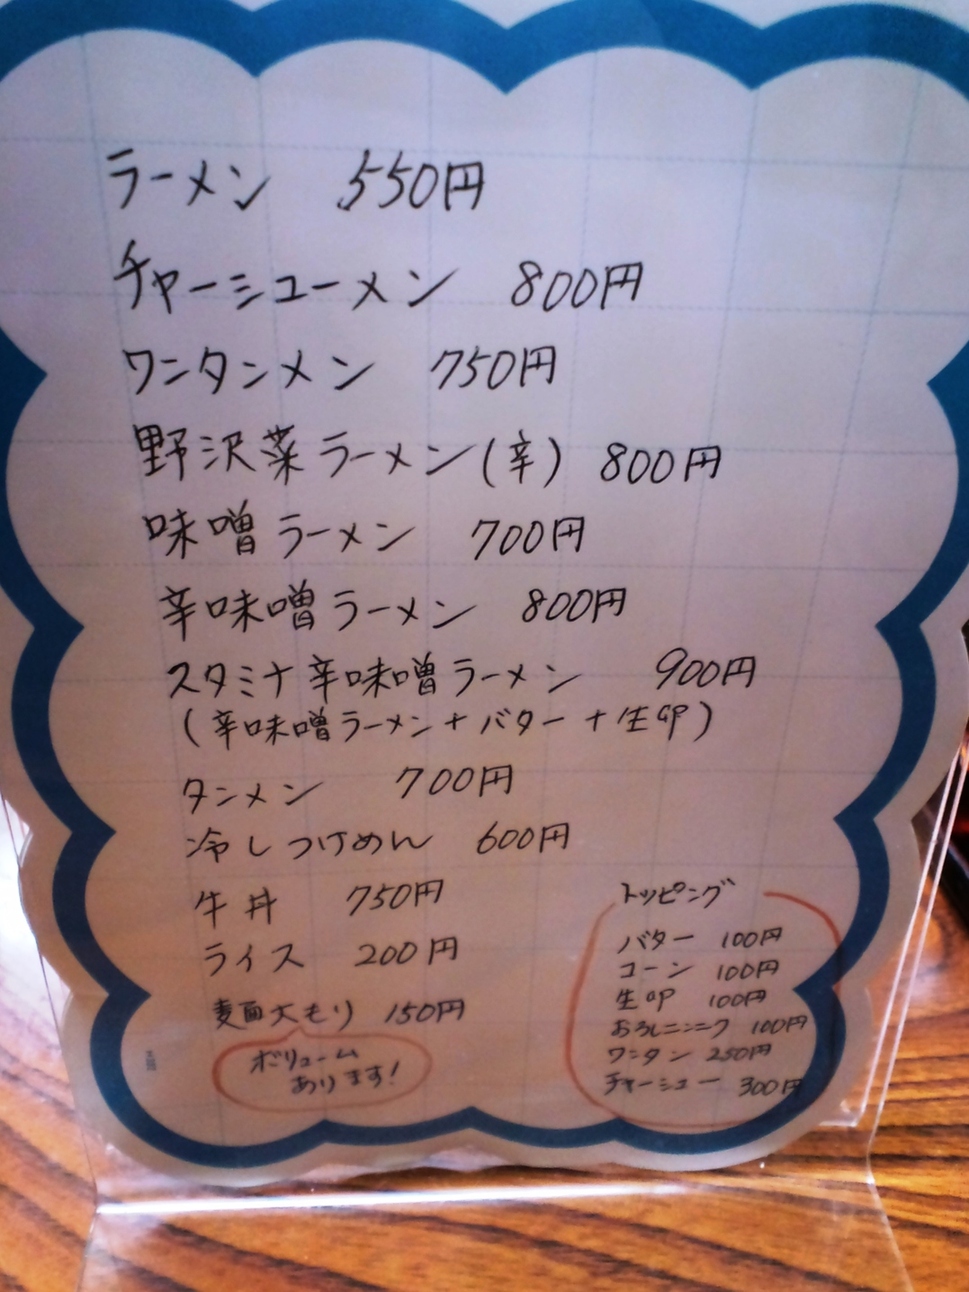 ラーメン 550円
チャーシューメン 800円
ワンタンメン 750円
野沢菜ラーメン(辛) 800円
味噌ラーメン 700円
辛味噌ラーメン 800円
スタミナ辛味噌ラーメン 900円
(辛味噌ラーメン+バター+生卵)
タンメン 700円
冷しつけめん 600円
牛丼 750円
ライス 200円
麺大もり 150円
ボリューム
あります!
トッピング
バター 100円
コーン 100円
生卵 100円
おろしニンニク 100円
ワンタン 250円
チャーシュー 300円